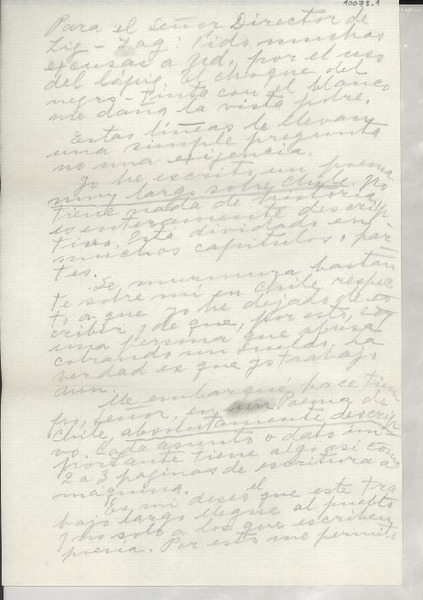 10073.1
Para el Señor Director de
Zig-Zag: Pido muchas
excusas a Ud, por el uso
del lápiz, el choque del
negro-tinta con el blanco
me daña la vista pobre.
Estas líneas le llevan
una simple pregunta
no una exigencia.
Yo he escrito un poema
muy largo sobre Chile. No
tiene nada de histórico,
es enteramente descrip
tivo. Está dividido en
muchos capítulos, par-
tes.
Se murmura bastan
te sobre mí en Chile respec
to a que yo he dejado de es
cribir y de que, por esto, soy
una persona que abusa
cobrando un sueldo. La
verdad es que yo trabajo
aún.
Me embarqué, hace tiem
po, señor, en un Poema de
Chile, absolutamente descrip
vo. Cada asunto o dato im
portante tiene algo así como
2 a 3 páginas de escritura a
máquina.
Es mi deseo el que este tra
bajo largo llegue al pueblo
y no solo a los que escriben
poema. Por esto me permito